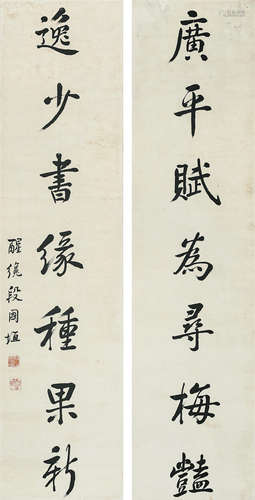 廣平賦為尋梅豔
逸少書緣種果新
醒繞段國垣